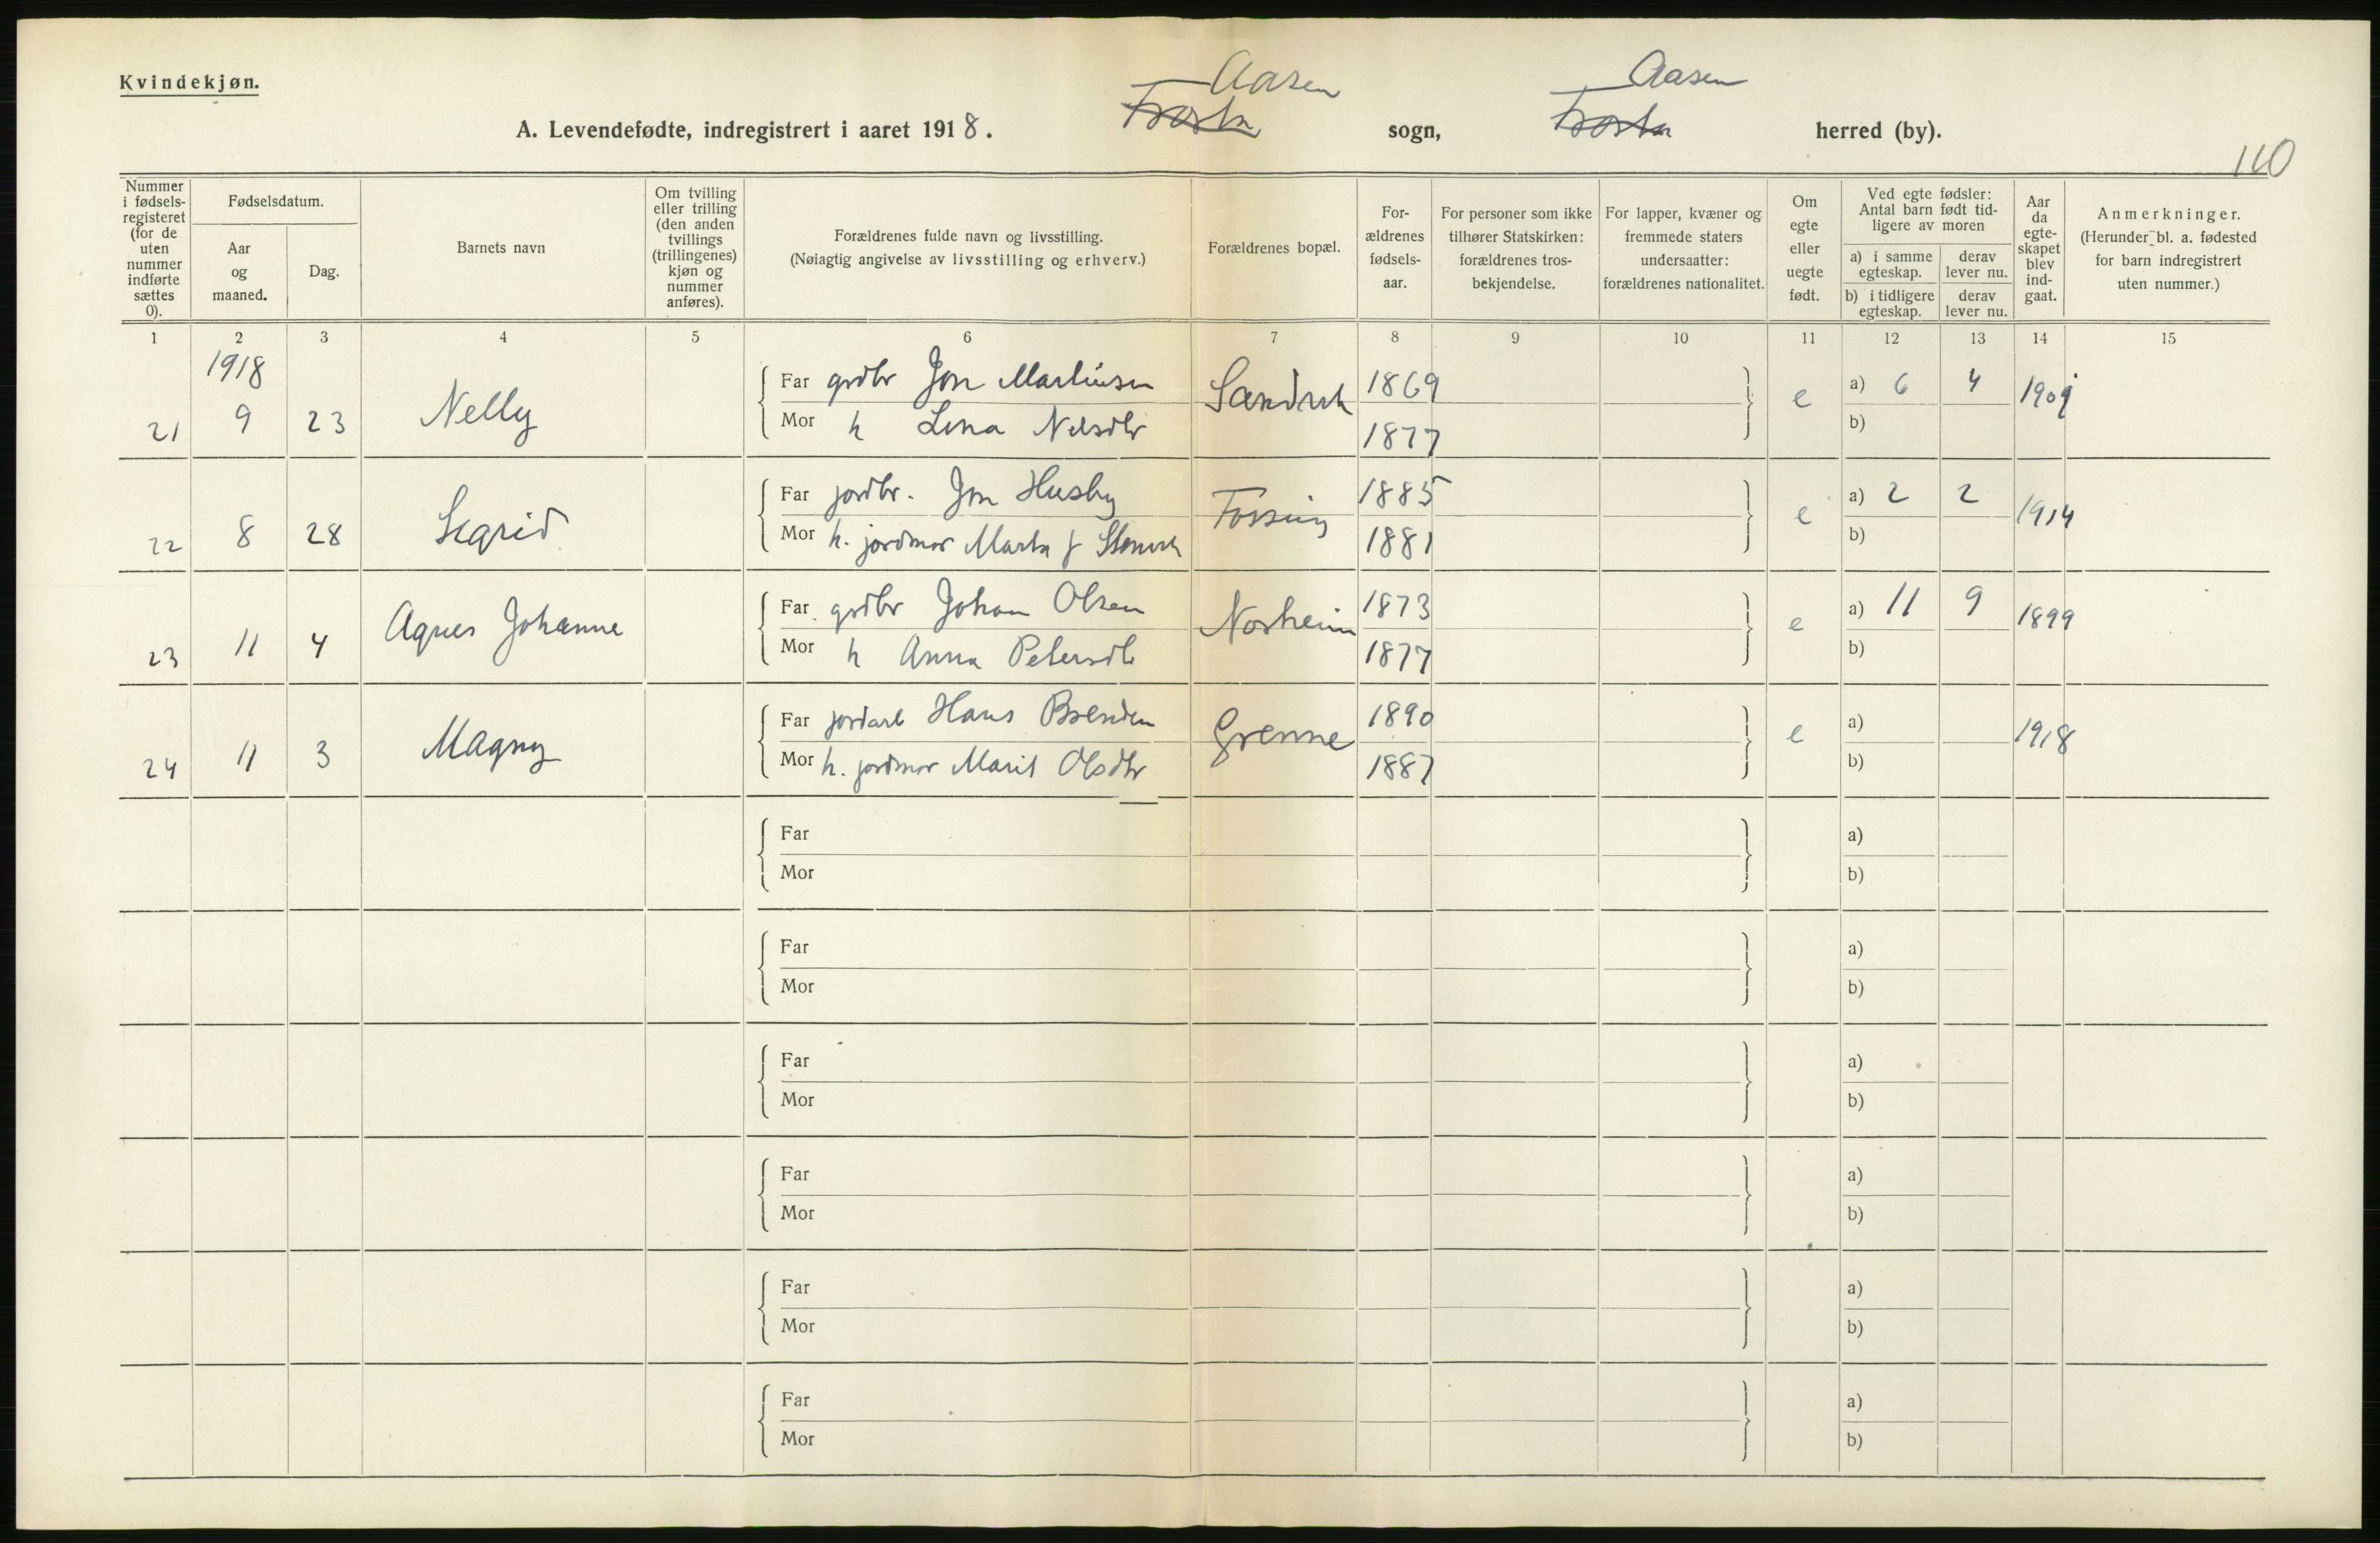 Kvindekjøn.
Aasen Aasen
A. Levendefødte, indregistrert i aaret 1918. Frosta sogn, Frosta herred (by).
110
Nummer i fødsels-registeret (for de uten nummer indførte sættes 0).
Fødselsdatum.
Aar og maaned.
Dag.
Barnets navn
Om tvilling eller trilling (den anden tvillings (trillingenes) kjøn og nummer anføres).
Forældrenes fulde navn og livsstilling.
(Nøiagtig angivelse av livsstilling og erhverv.)
Forældrenes bopæl.
For-ældrenes fødsels-aar.
For personer som ikke tilhører Statskirken: forældrenes tros-bekjendelse.
For lapper, kvæner og fremmede staters undersaatter: forældrenes nationalitet.
Om egte eller uegte født.
Ved egte fødsler: Antal barn født tid-ligere av moren
a) i samme egteskap. derav lever nu.
b) i tidligere egteskap. derav lever nu.
Aar da egte-skapet blev ind-gaat.
Anmerkninger.
(Herunder bl. a. fødested for barn indregistrert uten nummer.)
1 2 3 4 5 6 7 8 9 10 11 12 13 14 15
1918
21 9 23 Nelly Far grdbr Jon Martinsen 1869 e a) 6 4 1909
Mor h Lina Nilsdtr 1877 b)
22 8 28 Sigrid Far jordbr. Jon Husby Fossing 1885 e a) 2 2 1914
Mor h. jordmor Marta f 1881 b)
23 11 4 Agnes Johanne Far grdbr Johan Olsen Norheim 1873 e a) 11 9 1899
Mor h Anna Petersdtr 1877 b)
24 11 3 Magny Far jordarb Hans Brenden Grenne 1890 e a) 1918
Mor h. jordmor Marit Olsdtr 1887 b)
Far a)
Mor b)
Far a)
Mor b)
Far a)
Mor b)
Far a)
Mor b)
Far a)
Mor b)
Far a)
Mor b)